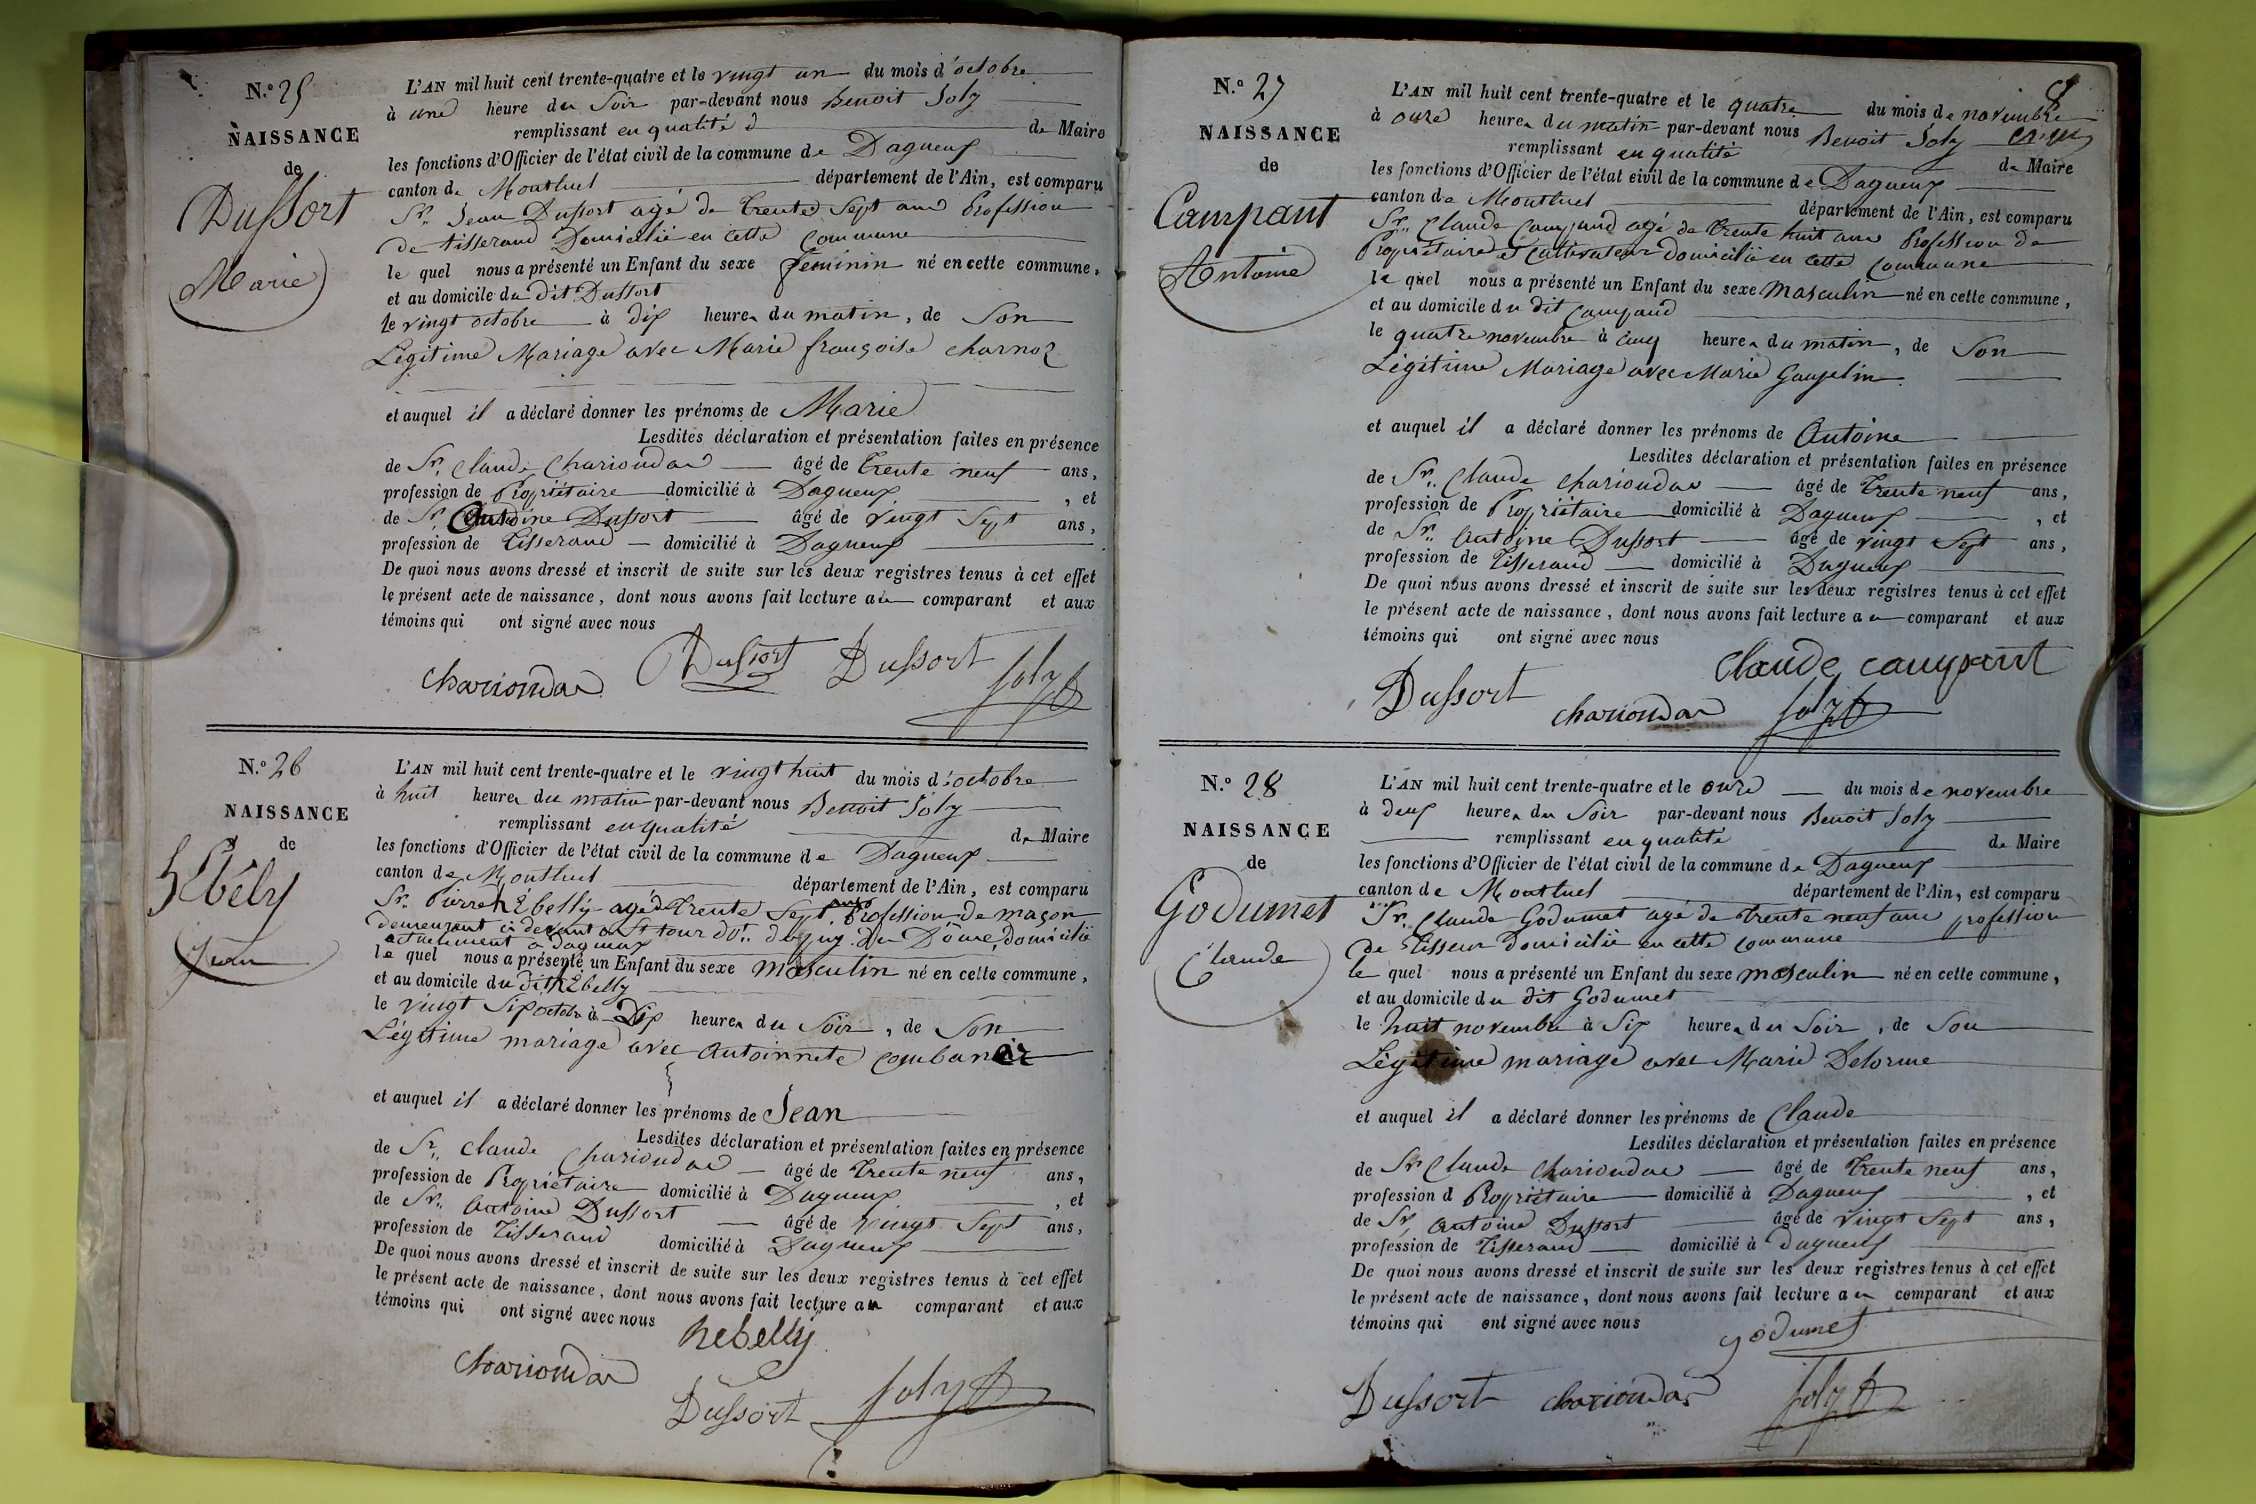 N.º 25
NAISSANCE
de
Dussort
Marie
L'AN mil huit cent trente-quatre et le vingt un du mois d'octobre
à une heure du Soir par-devant nous Benoit Joly
remplissant en qualité d de Maire
les fonctions d'Officier de l'état civil de la commune de Dagneux
canton de Montluel département de l'Ain, est comparu
Sr. Jean Dussort agé de trente Sept ans Profession
de tisserand Domicilié en cette commune
le quel nous a présenté un Enfant du sexe feminin né en cette commune,
et au domicile du dit Dussort
le vingt octobre à dix heures du matin, de Son
Légitime Mariage avec Marie françoise charnoz
et auquel il a déclaré donner les prénoms de Marie
Lesdites déclaration et présentation faites en présence
de Sr. Claude Chariondas âgé de trente neuf ans,
profession de Propriétaire domicilié à Dagneux, et
de Sr Antoine Dussort âgé de vingt Sept ans,
profession de Tisserand domicilié à Dagneux
De quoi nous avons dressé et inscrit de suite sur les deux registres tenus à cet effet
le présent acte de naissance, dont nous avons fait lecture au comparant et aux
témoins qui ont signé avec nous
chariondas Dussort Dussort Joly
N.º 26
NAISSANCE
de
hEbély
Jean
L'AN mil huit cent trente-quatre et le vingt huit du mois d'octobre
à huit heures du matin par-devant nous Benoit Joly
remplissant en qualité de Maire
les fonctions d'Officier de l'état civil de la commune de Dagneux
canton de Montluel département de l'Ain, est comparu
Sr. Pierre hEbelly agé de trente Sept ans Profession de maçon
demeurant ci devant à St tour Dt. de puy du Dôme, domicilié
actuellement a Dagneux
le quel nous a présenté un Enfant du sexe masculin né en cette commune,
et au domicile du dit hEbelly
le vingt Six octobre à Dix heures du Soir, de Son
Légitime mariage avec antoinnete combanair
et auquel il a déclaré donner les prénoms de Jean
Lesdites déclaration et présentation faites en présence
de Sr. Claude Chariondas âgé de trente neuf ans,
profession de Propriétaire domicilié à Dagneux, et
de Sr. Antoine Dussort âgé de vingt Sept ans,
profession de Tisserand domicilié à Dagneux
De quoi nous avons dressé et inscrit de suite sur les deux registres tenus à cet effet
le présent acte de naissance, dont nous avons fait lecture au comparant et aux
témoins qui ont signé avec nous
hebelly
chariondas Dussort Joly
N.º 27
NAISSANCE
de
Campant
Antoine
L'AN mil huit cent trente-quatre et le quatre du mois de novembre
à onze heures du matin par-devant nous Benoit Joly
remplissant en qualité de Maire
les fonctions d'Officier de l'état civil de la commune de Dagneux
canton de Montluel département de l'Ain, est comparu
Sr. Claude Campand agé de trente huit ans Profession de
Propriétaire et Cultivateur domicilié en cette commune
le quel nous a présenté un Enfant du sexe masculin né en cette commune,
et au domicile du dit Campand
le quatre novembre à cinq heures du matin, de Son
Légitime Mariage avec Marie Gauselin
et auquel il a déclaré donner les prénoms de Antoine
Lesdites déclaration et présentation faites en présence
de Sr. Claude chariondas âgé de trente neuf ans,
profession de Propriétaire domicilié à Dagneux, et
de Sr. Antoine Dussort âgé de vingt Sept ans,
profession de Tisserand domicilié à Dagneux
De quoi nous avons dressé et inscrit de suite sur les deux registres tenus à cet effet
le présent acte de naissance, dont nous avons fait lecture au comparant et aux
témoins qui ont signé avec nous
Claude campant
Dussort chariondas Joly
N.º 28
NAISSANCE
de
Godumet
Claude
L'AN mil huit cent trente-quatre et le onze du mois de novembre
à deux heures du Soir par-devant nous Benoit Joly
remplissant en qualité de Maire
les fonctions d'Officier de l'état civil de la commune de Dagneux
canton de Montluel département de l'Ain, est comparu
Sr. Claude Godumet agé de trente neuf ans profession
de Tisseur domicilié en cette commune
le quel nous a présenté un Enfant du sexe masculin né en cette commune,
et au domicile du dit Godumet
le huit novembre à Six heures du Soir, de Son
Légitime mariage avec Marie Delorme
et auquel il a déclaré donner les prénoms de Claude
Lesdites déclaration et présentation faites en présence
de Sr Claude Chariondas âgé de trente neuf ans,
profession d Propriétaire domicilié à Dagneux, et
de Sr. Antoine Dussort âgé de vingt Sept ans,
profession de Tisserand domicilié à Dagneux
De quoi nous avons dressé et inscrit de suite sur les deux registres tenus à cet effet
le présent acte de naissance, dont nous avons fait lecture au comparant et aux
témoins qui ont signé avec nous
godumet
Dussort chariondas Joly